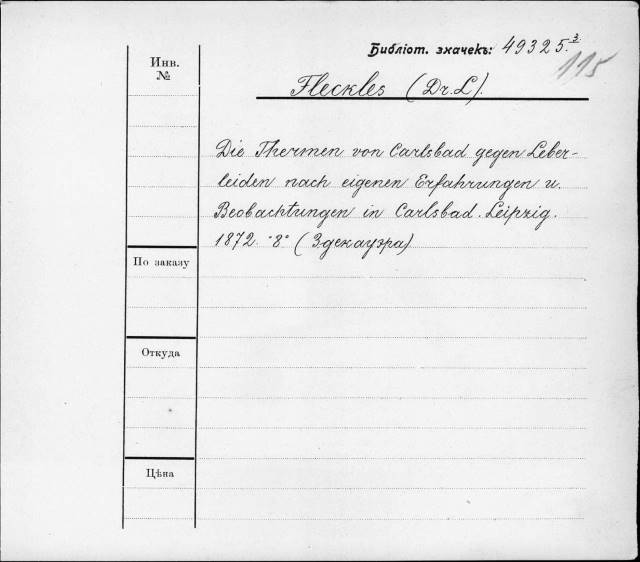 Библіот. значекъ: 49325.³
115
Инв.
№
Fleckles (Dr. L).
Die Thermen von Carlsbad gegen Leber-
leiden nach eigenen Erfahrungen u.
Beobachtungen in Carlsbad. Leipzig.
1872. "8° (Здекауэра)
По заказу
Откуда
Цѣна